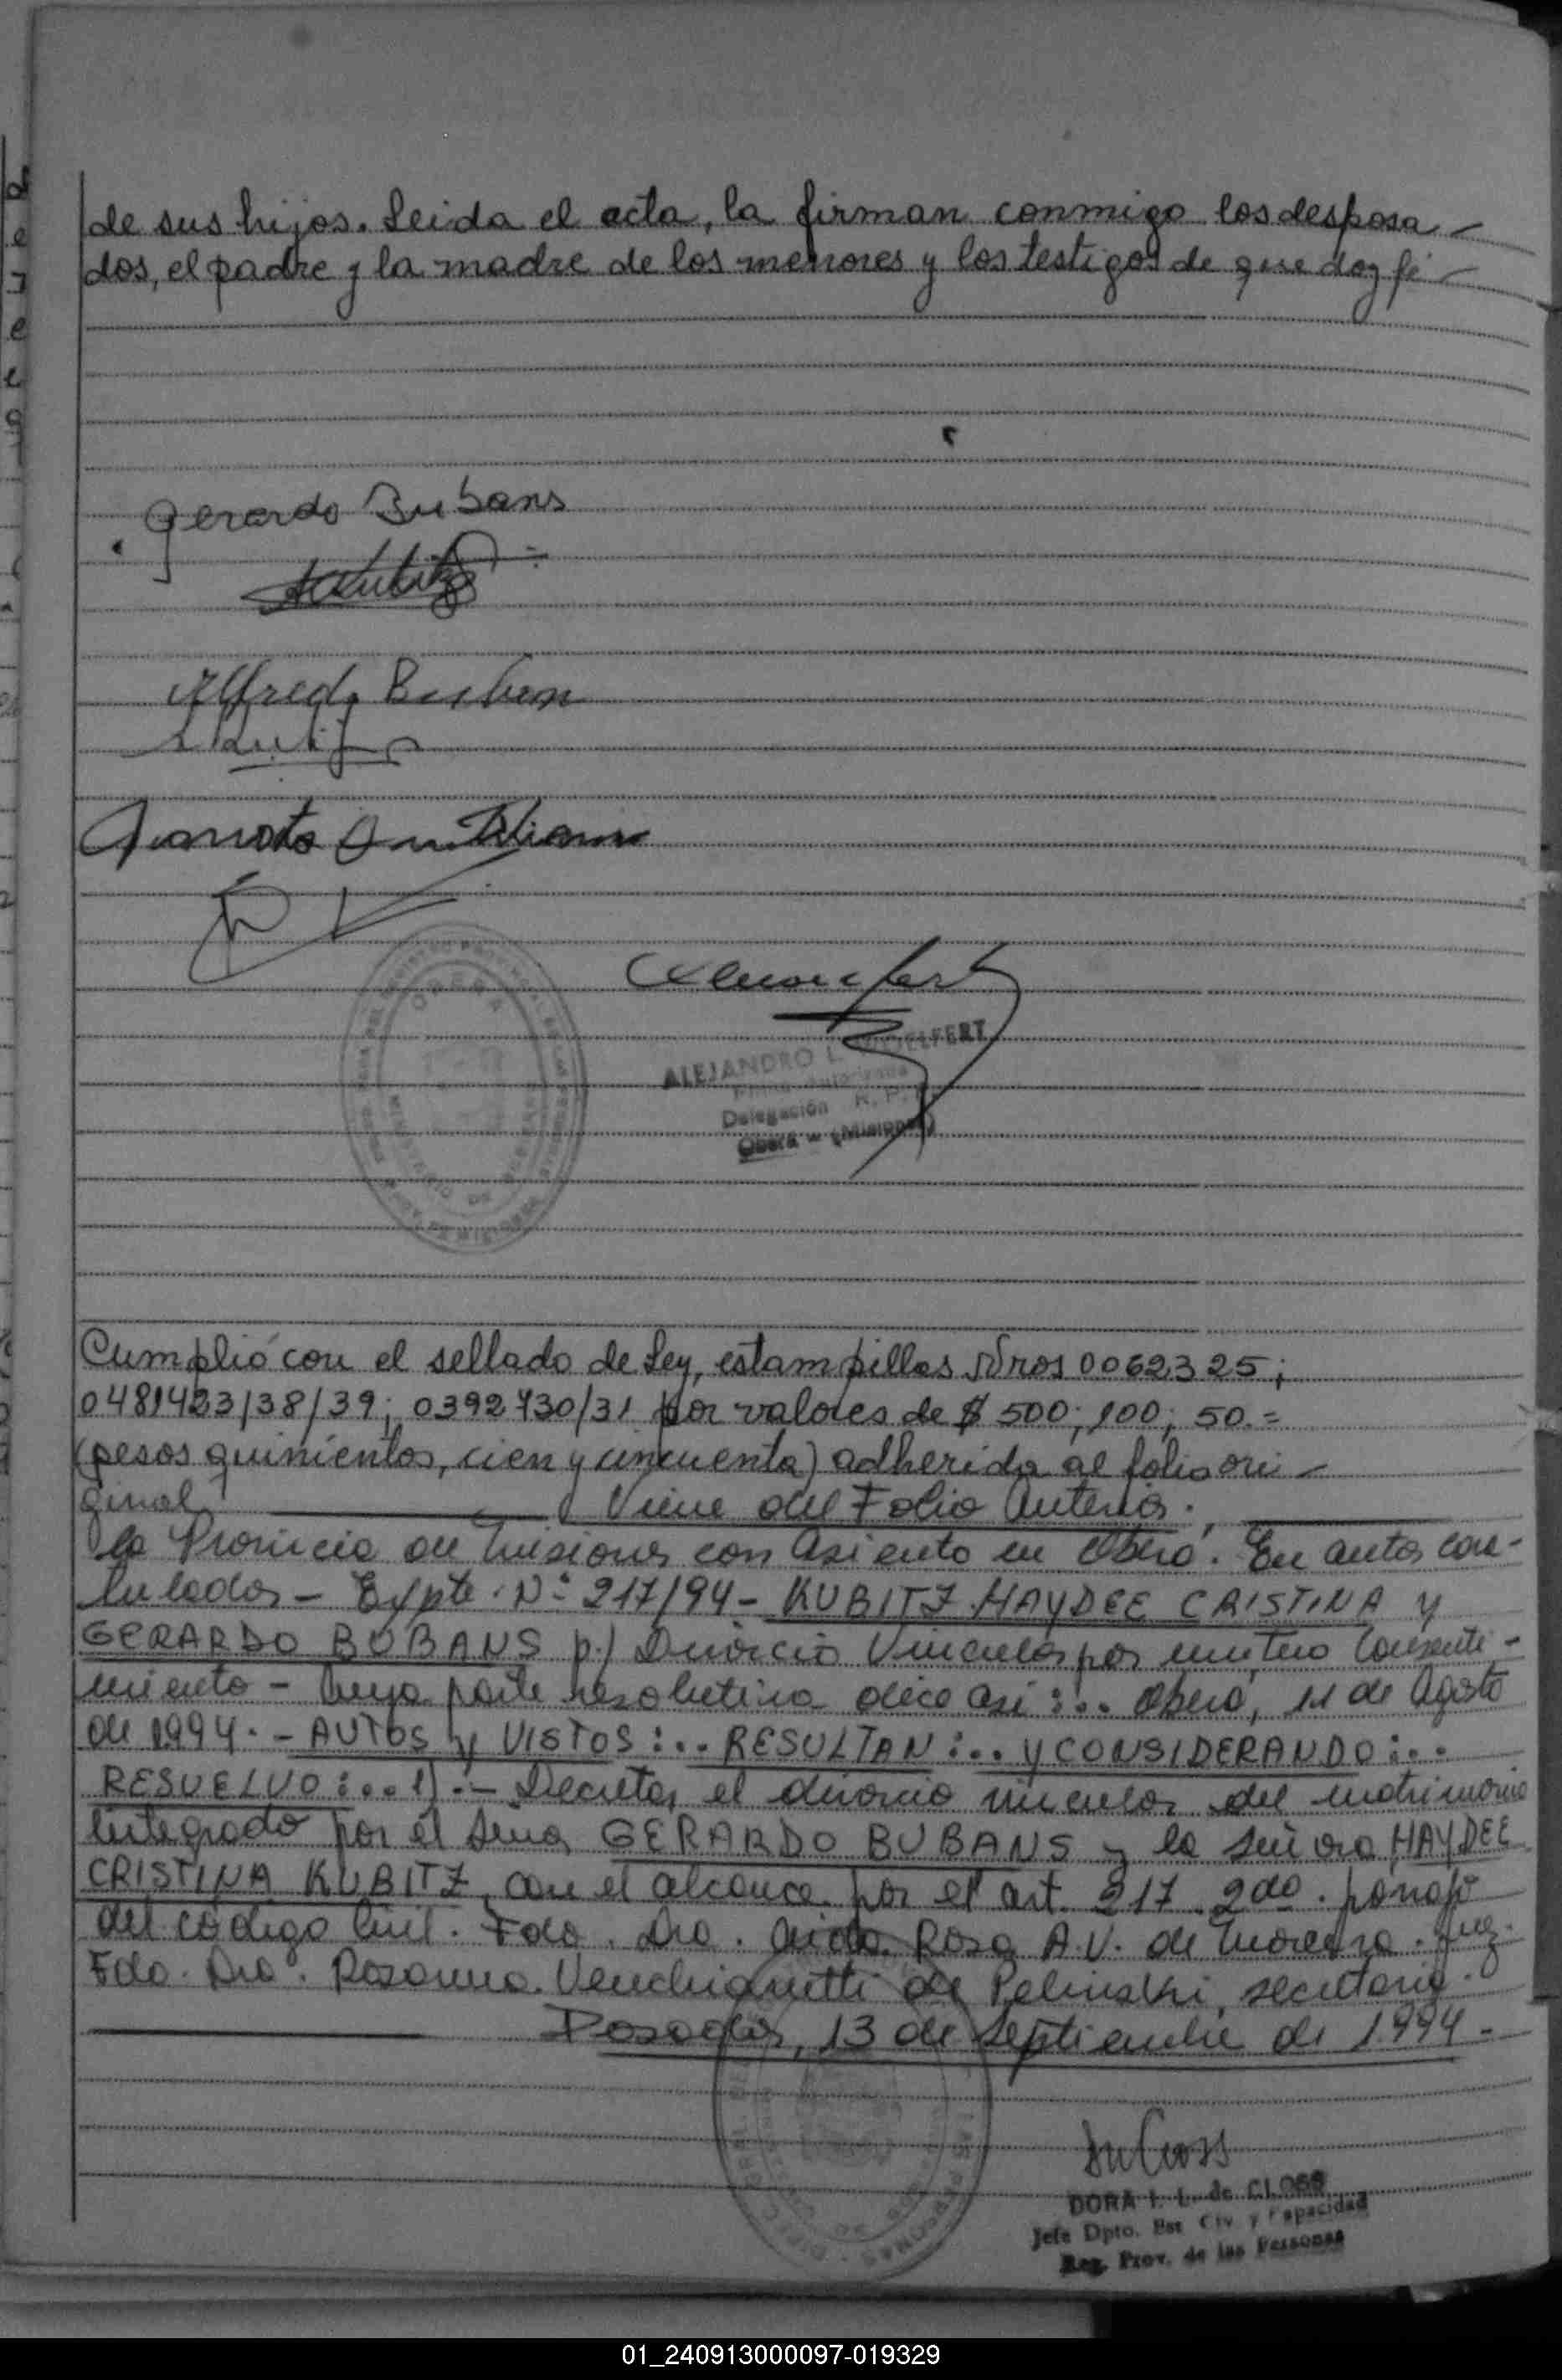 de sus hijos. Leida el acta, la firman conmigo los desposa-
dos, el padre y la madre de los menores y los testigos de que doy fé-
Gerardo Bubans
Alfredo Buban
ALEJANDRO L. WOELFERT
Firma Autorizada
Delegación R. P.
Oberá - (Misiones)
OBERA
Cumplió con el sellado de Ley, estampillas Nros 0062325;
0481423/38/39; 0392730/31 por valores de $ 500; 100; 50.=
(pesos quinientos, cien y cincuenta) adherida al folio ori-
ginal. Viene del Folio Anterior.
la Provincia de Misiones con asiento en Oberá. En autos cara-
tulados - Expte. Nº 217/94 - KUBITZ HAYDEE CRISTINA y
GERARDO BUBANS p/ Divorcio Vincular por mutuo Consenti-
miento - Cuya parte resolutiva dice así:.. Oberá, 11 de Agosto
de 1994. - AUTOS y VISTOS:.. RESULTAN:.. y CONSIDERANDO:..
RESUELVO:.. 1).- Decretar el divorcio vincular del matrimonio
integrado por el Señor GERARDO BUBANS y la señora HAYDEE
CRISTINA KUBITZ, con el alcance por el art. 217 2do. parrafo
del código Civil. Fdo. Dra. Aida Rosa A.V. de Moreira. Juez.
Fdo. Dra. Rosanna Venchiarutti de Pelinski, secretaria.
Posadas, 13 de Septiembre de 1994.-
DORA I. L. de CLOSS
Jefe Dpto. Est. Civ. y Capacidad
Reg. Prov. de las Personas
01_240913000097-019329